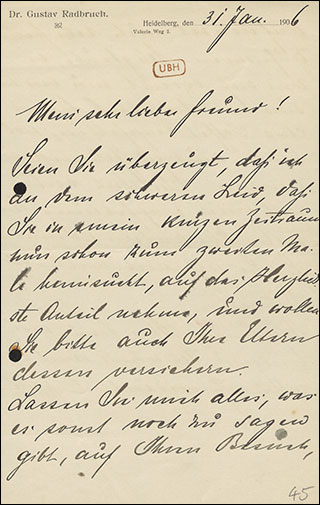 Dr. Gustav Radbruch.
Heidelberg, den 31. Jan. 1906
Valerie Weg 2.
UBH
Mein sehr lieber Freund!
Seien Sie überzeugt, daß ich
an dem schweren Leid, daß
Sie in einem kurzen Zeitraum
nun schon zum zweiten Ma-
le heimsucht, auf das Herzlich-
ste Anteil nehme, und wollen
Sie bitte auch Ihre Eltern
dessen versichern.
Lassen Sie mich alles, was
es sonst noch zu sagen
gibt, auf Ihren Besuch,
45